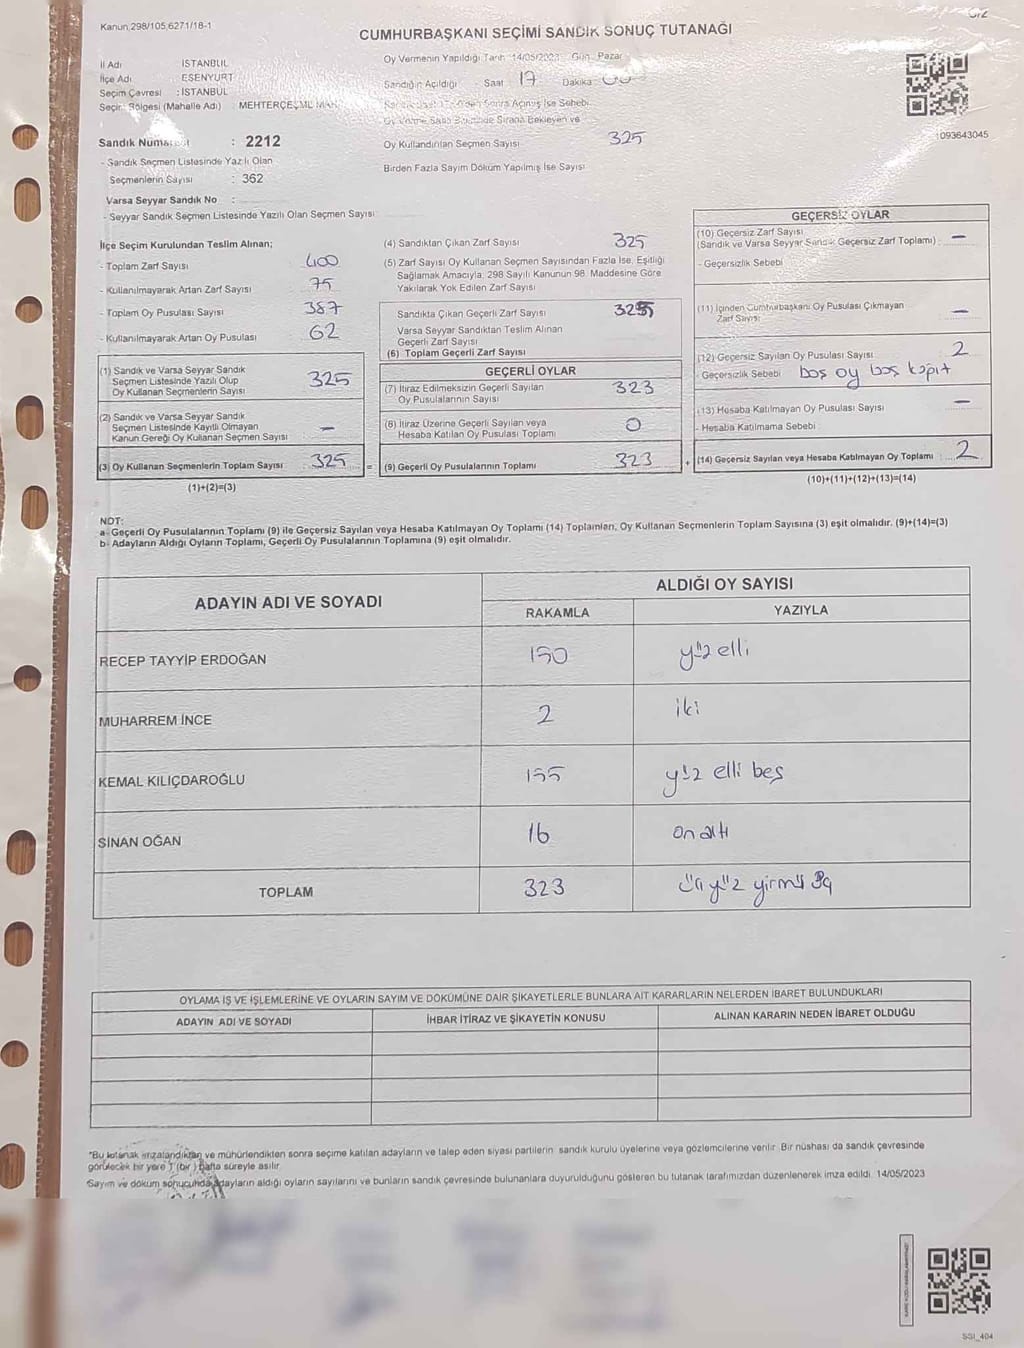 Kanun 298/105,6271/18-1
CUMHURBAŞKANI SEÇİMİ SANDIK SONUÇ TUTANAĞI
İl Adı İSTANBUL
İlçe Adı ESENYURT
Seçim Çevresi : İSTANBUL
Seçim Bölgesi (Mahalle Adı) : MEHTERÇEŞME MAH.
Sandık Numarası : 2212
- Sandık Seçmen Listesinde Yazılı Olan
Seçmenlerin Sayısı : 362
Varsa Seyyar Sandık No :
- Seyyar Sandık Seçmen Listesinde Yazılı Olan Seçmen Sayısı
Oy Vermenin Yapıldığı Tarih 14/05/2023 Gün Pazar
Sandığın Açıldığı - Saat 17 Dakika 00
Oy Verme Saati Bitiminde Sırada Bekleyen ve
Oy Kullandırılan Seçmen Sayısı 325
Birden Fazla Sayım Döküm Yapılmış İse Sayısı
1093643045
İlçe Seçim Kurulundan Teslim Alınan;
- Toplam Zarf Sayısı 400
- Kullanılmayarak Artan Zarf Sayısı 75
- Toplam Oy Pusulası Sayısı 387
- Kullanılmayarak Artan Oy Pusulası 62
(1) Sandık ve Varsa Seyyar Sandık
Seçmen Listesinde Yazılı Olup
Oy Kullanan Seçmenlerin Sayısı 325
(2) Sandık ve Varsa Seyyar Sandık
Seçmen Listesinde Kayıtlı Olmayan
Kanun Gereği Oy Kullanan Seçmen Sayısı –
(3) Oy Kullanan Seçmenlerin Toplam Sayısı 325
(1)+(2)=(3)
(4) Sandıktan Çıkan Zarf Sayısı 325
(5) Zarf Sayısı Oy Kullanan Seçmen Sayısından Fazla İse, Eşitliği
Sağlamak Amacıyla, 298 Sayılı Kanunun 98. Maddesine Göre
Yakılarak Yok Edilen Zarf Sayısı
Sandıkta Çıkan Geçerli Zarf Sayısı 325
Varsa Seyyar Sandıktan Teslim Alınan
Geçerli Zarf Sayısı
(6) Toplam Geçerli Zarf Sayısı
GEÇERLİ OYLAR
(7) İtiraz Edilmeksizin Geçerli Sayılan
Oy Pusulalarının Sayısı 323
(8) İtiraz Üzerine Geçerli Sayılan veya
Hesaba Katılan Oy Pusulası Toplamı 0
= (9) Geçerli Oy Pusulalarının Toplamı 323
GEÇERSİZ OYLAR
(10) Geçersiz Zarf Sayısı
(Sandık ve Varsa Seyyar Sandık Geçersiz Zarf Toplamı) : –
- Geçersizlik Sebebi
(11) İçinden Cumhurbaşkanı Oy Pusulası Çıkmayan
Zarf Sayısı –
(12) Geçersiz Sayılan Oy Pusulası Sayısı 2
- Geçersizlik Sebebi boş oy boş kağıt
(13) Hesaba Katılmayan Oy Pusulası Sayısı –
- Hesaba Katılmama Sebebi
+ (14) Geçersiz Sayılan veya Hesaba Katılmayan Oy Toplamı 2
(10)+(11)+(12)+(13)=(14)
NOT:
a- Geçerli Oy Pusulalarının Toplamı (9) ile Geçersiz Sayılan veya Hesaba Katılmayan Oy Toplamı (14) Toplamları, Oy Kullanan Seçmenlerin Toplam Sayısına (3) eşit olmalıdır. (9)+(14)=(3)
b- Adayların Aldığı Oyların Toplamı, Geçerli Oy Pusulalarının Toplamına (9) eşit olmalıdır.
ADAYIN ADI VE SOYADI ALDIĞI OY SAYISI
RAKAMLA YAZIYLA
RECEP TAYYİP ERDOĞAN 150 yüz elli
MUHARREM İNCE 2 iki
KEMAL KILIÇDAROĞLU 155 yüz elli beş
SİNAN OĞAN 16 on altı
TOPLAM 323 üç yüz yirmi üç
OYLAMA İŞ VE İŞLEMLERİNE VE OYLARIN SAYIM VE DÖKÜMÜNE DAİR ŞİKAYETLERLE BUNLARA AİT KARARLARIN NELERDEN İBARET BULUNDUKLARI
ADAYIN ADI VE SOYADI İHBAR İTİRAZ VE ŞİKAYETİN KONUSU ALINAN KARARIN NEDEN İBARET OLDUĞU
*Bu tutanak imzalandıktan ve mühürlendikten sonra seçime katılan adayların ve talep eden siyasi partilerin sandık kurulu üyelerine veya gözlemcilerine verilir. Bir nüshası da sandık çevresinde
görülecek bir yere 1 (bir ) hafta süreyle asılır.
Sayım ve döküm sonucunda adayların aldığı oyların sayılarını ve bunların sandık çevresinde bulunanlara duyurulduğunu gösteren bu tutanak tarafımızdan düzenlenerek imza edildi. 14/05/2023
SSI_404